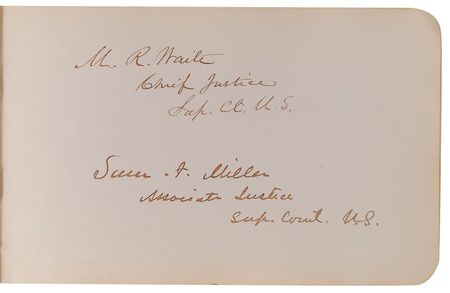 M. R. Waite
Chief Justice
Sup. Ct. U.S.
Sam. F. Miller
Associate Justice
Sup. Court. U.S.